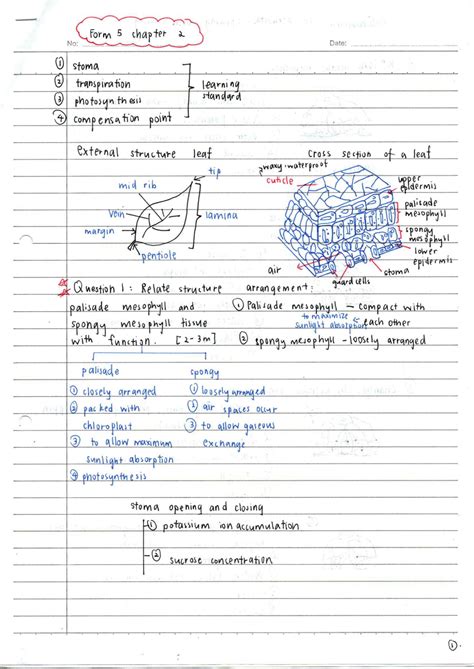 Form 5 chapter 2
No:
Date:
① stoma
② transpiration
③ photosynthesis
④ compensation point
learning
standard
External structure leaf
mid rib
tip
vein
lamina
margin
pentiole
Cross section of a leaf
waxy-waterproof
cuticle
upper
epidermis
palisade
mesophyll
spongy
mesophyll
lower
epidermis
stoma
guard cells
air
Question 1: Relate structure arrangement:
palisade mesophyll and
spongy mesophyll tissue
with function. [2-3m]
① Palisade mesophyll - compact with
each other
to maximize
sunlight absorption
② spongy mesophyll - loosely arranged
palisade
① closely arranged
② packed with
chloroplast
③ to allow maximum
sunlight absorption
④ photosynthesis
spongy
① loosely arranged
② air spaces occur
③ to allow gaseous
exchange
stoma opening and closing
① potassium ion accumulation
② sucrose concentration
①